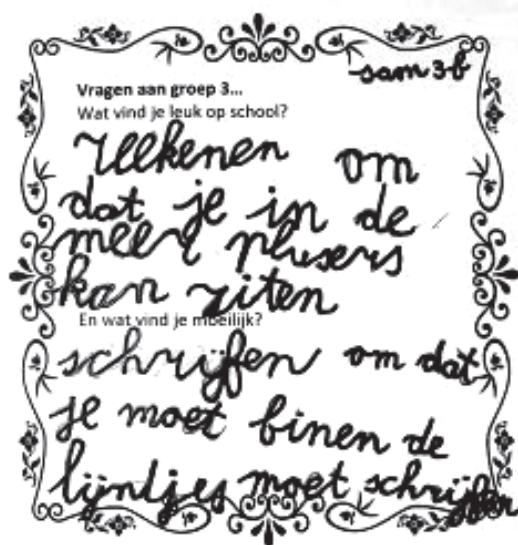 sam 3-b
Vragen aan groep 3...
Wat vind je leuk op school?
rekenen om
dat je in de
meer plusers
kan ziten
En wat vind je moeilijk?
schrijfen om dat
je moet binen de
lijntjes moet schrijfen